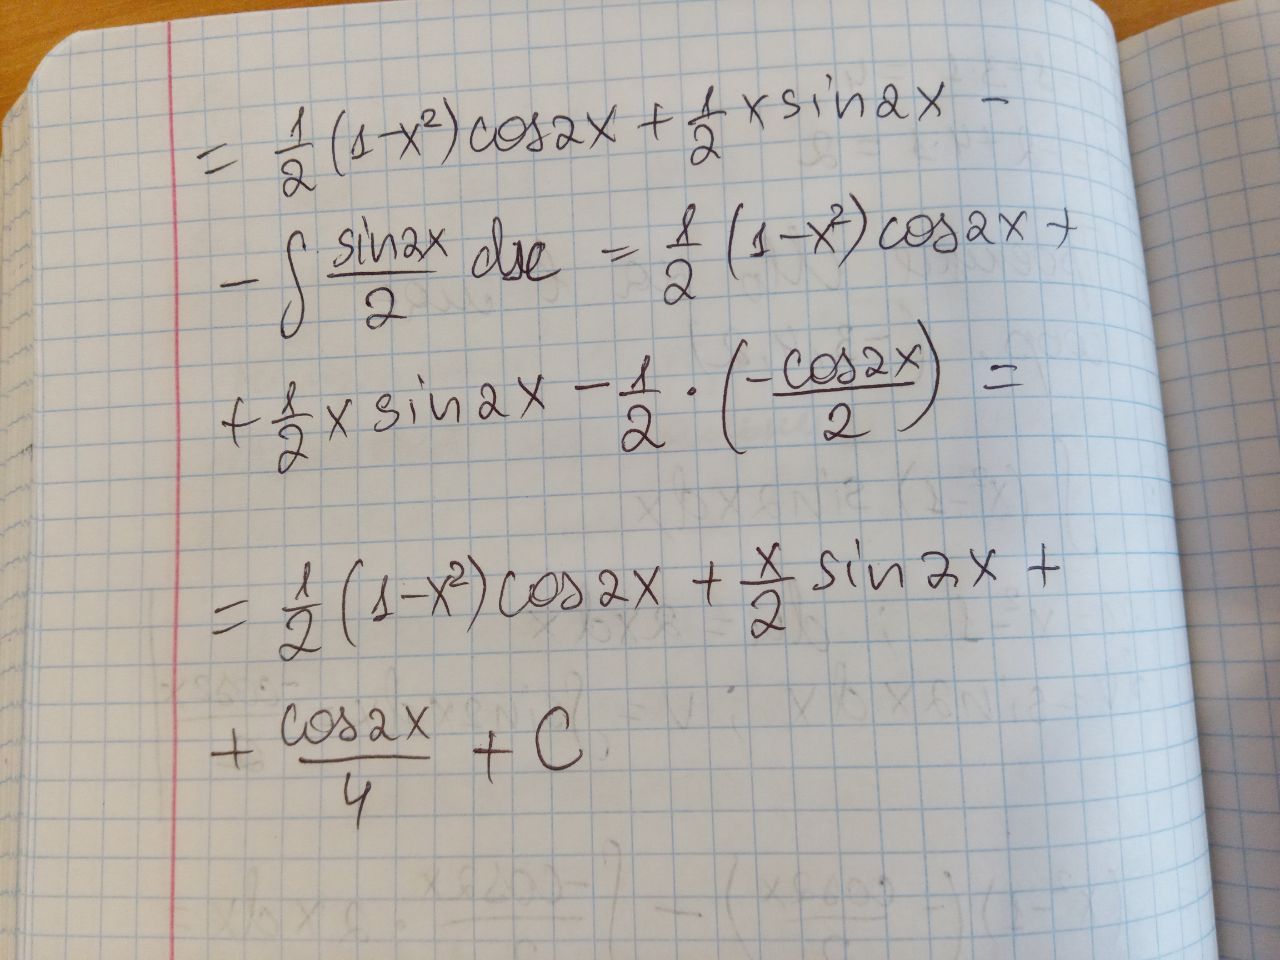 = 1/2 (1-x²) cos2x + 1/2 x sin2x -
- ∫ sin2x/2 dx = 1/2 (1-x²) cos2x +
+ 1/2 x sin2x - 1/2 · (- cos2x/2) =
= 1/2 (1-x²) cos2x + x/2 sin2x +
+ cos2x/4 + C